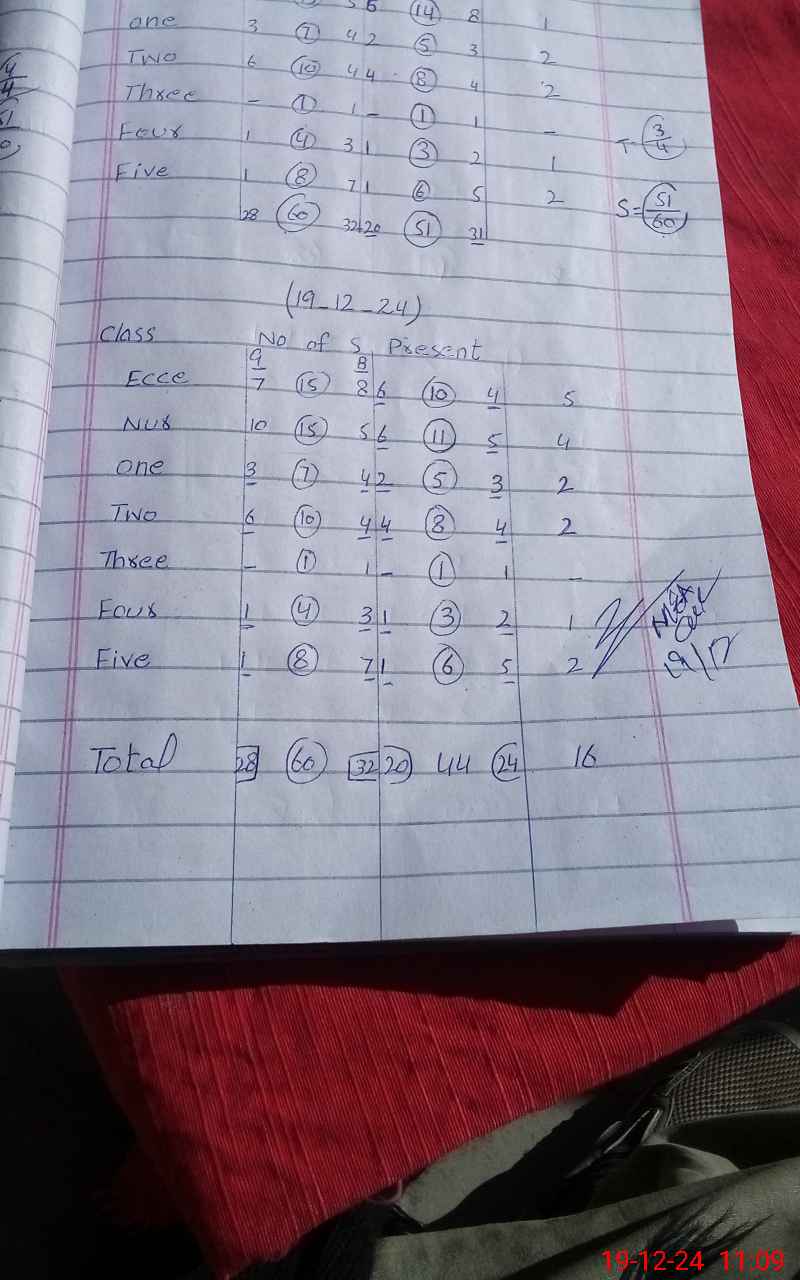 14 8 1
One 3 7 4 2 5 3 2
Two 6 10 4 4 8 4 2
Three - 1 1 - 1 1 -
Four 1 4 3 1 3 2 1
Five 1 8 7 1 6 5 2
28 60 32 20 51 31
T= 3/4
S= 51/60
(19-12-24)
Class No of S Present
G B
Ecce 7 15 8 6 10 4 5
Nur 10 15 5 6 11 5 4
One 3 7 4 2 5 3 2
Two 6 10 4 4 8 4 2
Three - 1 1 - 1 1 -
Four 1 4 3 1 3 2 1
Five 1 8 7 1 6 5 2
19/12
Total 28 60 32 20 44 24 16
19-12-24 11:09